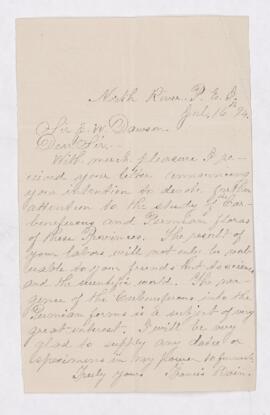 North River, P. E. I.
16th 94.
Sir J. W. Dawson.
Dear Sir:-
With much pleasure I re-
ceived your letter announcing
your intention to devote further
attention to the study of the Car-
boniferous and Permian floras
of these Provinces. The result of
your labors will not only be val-
uable to your friends but to science
and the scientific world. The
gence of the Carboniferous into the
Permian forms is a subject of very
great interest. I will be very
glad to supply any data or
specimens in my power to furnish.
Truly yours Francis Bain.